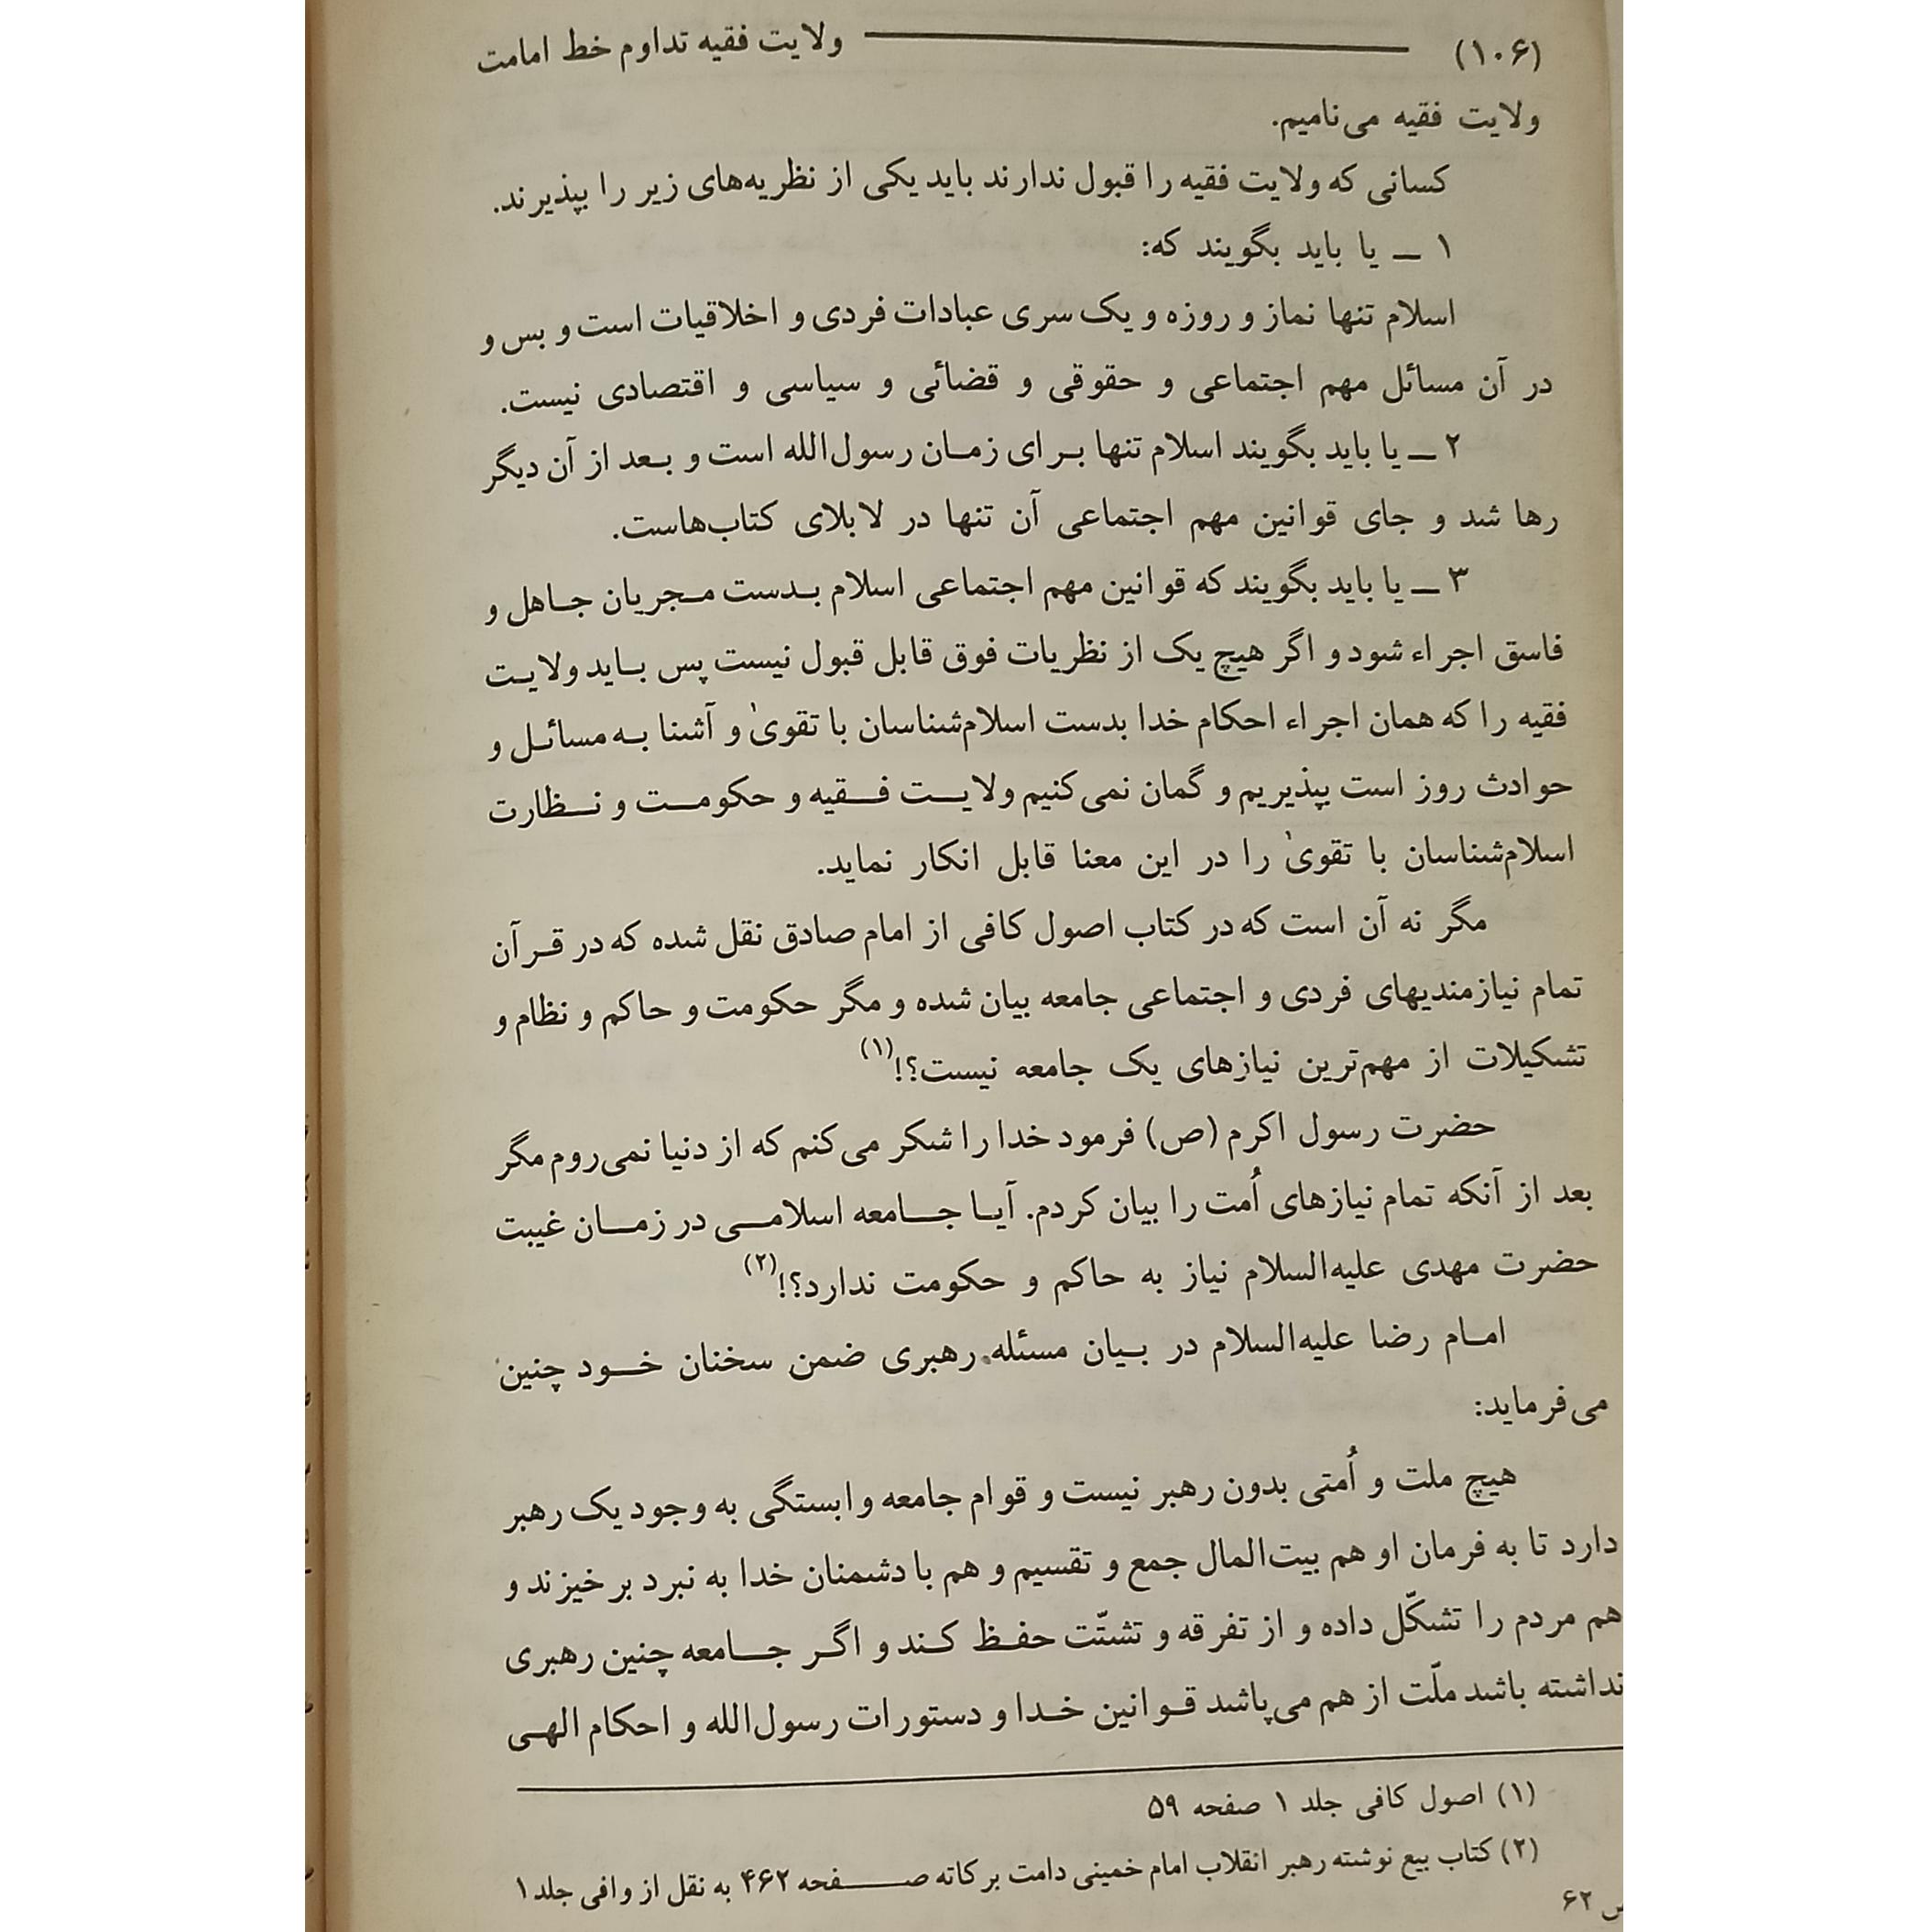 (۱۰۶) ولایت فقیه تداوم خط امامت
ولایت فقیه می‌نامیم.
کسانی که ولایت فقیه را قبول ندارند باید یکی از نظریه‌های زیر را بپذیرند.
۱ ــ یا باید بگویند که:
اسلام تنها نماز و روزه و یک سری عبادات فردی و اخلاقیات است و بس و
در آن مسائل مهم اجتماعی و حقوقی و قضائی و سیاسی و اقتصادی نیست.
۲ ــ یا باید بگویند اسلام تنها برای زمان رسول‌الله است و بعد از آن دیگر
رها شد و جای قوانین مهم اجتماعی آن تنها در لابلای کتاب‌هاست.
۳ ــ یا باید بگویند که قوانین مهم اجتماعی اسلام بدست مجریان جاهل و
فاسق اجراء شود و اگر هیچ یک از نظریات فوق قابل قبول نیست پس باید ولایت
فقیه را که همان اجراء احکام خدا بدست اسلام‌شناسان با تقویٰ و آشنا به مسائل و
حوادث روز است بپذیریم و گمان نمی‌کنیم ولایت فقیه و حکومت و نظارت
اسلام‌شناسان با تقویٰ را در این معنا قابل انکار نماید.
مگر نه آن است که در کتاب اصول کافی از امام صادق نقل شده که در قرآن
تمام نیازمندیهای فردی و اجتماعی جامعه بیان شده و مگر حکومت و حاکم و نظام و
تشکیلات از مهم‌ترین نیازهای یک جامعه نیست؟!(۱)
حضرت رسول اکرم (ص) فرمود خدا را شکر می‌کنم که از دنیا نمی‌روم مگر
بعد از آنکه تمام نیازهای اُمت را بیان کردم. آیا جامعه اسلامی در زمان غیبت
حضرت مهدی علیه‌السلام نیاز به حاکم و حکومت ندارد؟!(۲)
امام رضا علیه‌السلام در بیان مسئله رهبری ضمن سخنان خود چنین
می‌فرماید:
هیچ ملت و اُمتی بدون رهبر نیست و قوام جامعه وابستگی به وجود یک رهبر
دارد تا به فرمان او هم بیت‌المال جمع و تقسیم و هم با دشمنان خدا به نبرد برخیزند و
هم مردم را تشکّل داده و از تفرقه و تشتّت حفظ کند و اگر جامعه چنین رهبری
نداشته باشد ملّت از هم می‌پاشد قوانین خدا و دستورات رسول‌الله و احکام الهی
(۱) اصول کافی جلد ۱ صفحه ۵۹
(۲) کتاب بیع نوشته رهبر انقلاب امام خمینی دامت برکاته صفحه ۴۶۲ به نقل از وافی جلد ۱
ص ۶۲